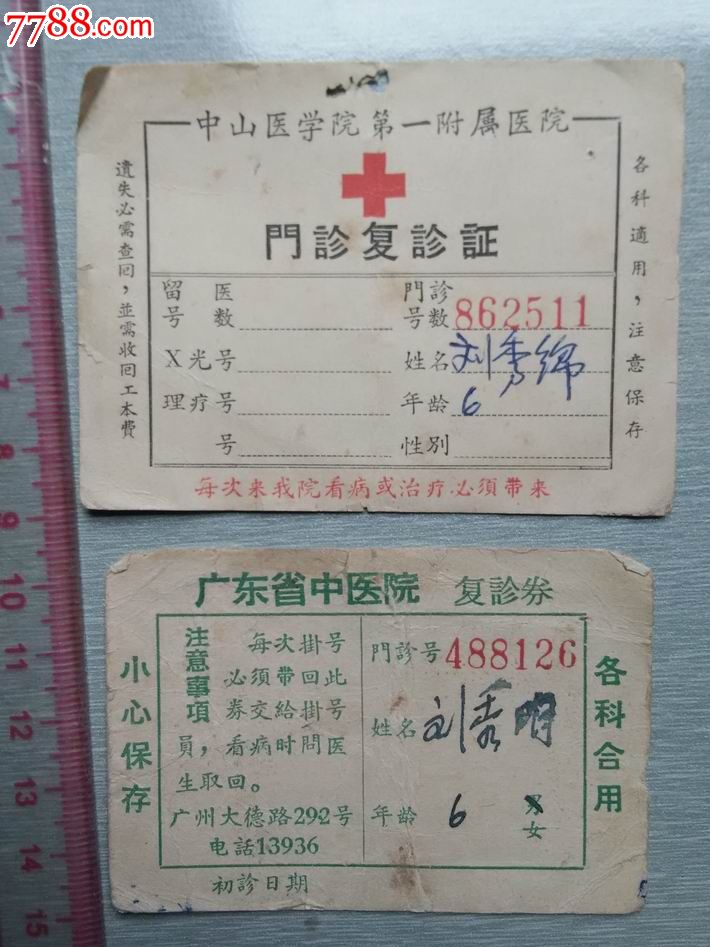 7788.com
中山医学院第一附属医院
門診复診証
遺失必需查回，並需收回工本費
各科適用，注意保存
留医号数
門診号数 862511
X光号
姓名 刘秀绵
理疗号
年龄 6
号
性别
每次来我院看病或治疗必須带来
广东省中医院 复診券
小心保存
注意事項
每次掛号
必须带回此
券交給掛号
員，看病时問医
生取回。
广州大德路292号
电話13936
初診日期
門診号 488126
姓名 刘秀明
年龄 6 男
女
各科合用
5
6
7
8
9
10
11
12
13
14
15